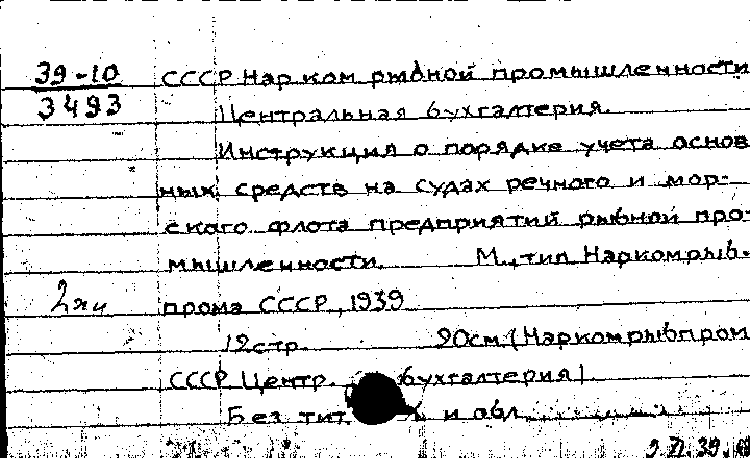 39-10 СССР Нарком рыбной промышленности
3493 Центральная бухгалтерия.
Инструкция о порядке учета основ
ных средств на судах речного и мор-
ского флота предприятий рыбной про-
мышленности. М., тип. Наркомрыб-
2 экз прома СССР, 1939
12 стр. 20 см (Наркомрыбпром
СССР Центр. бухгалтерия)
Без тит. и обл.